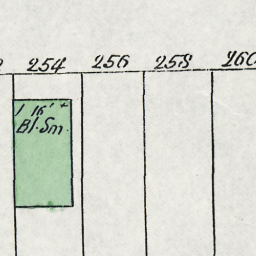 254 256 258 260
1 16' +
Bl. Sm.